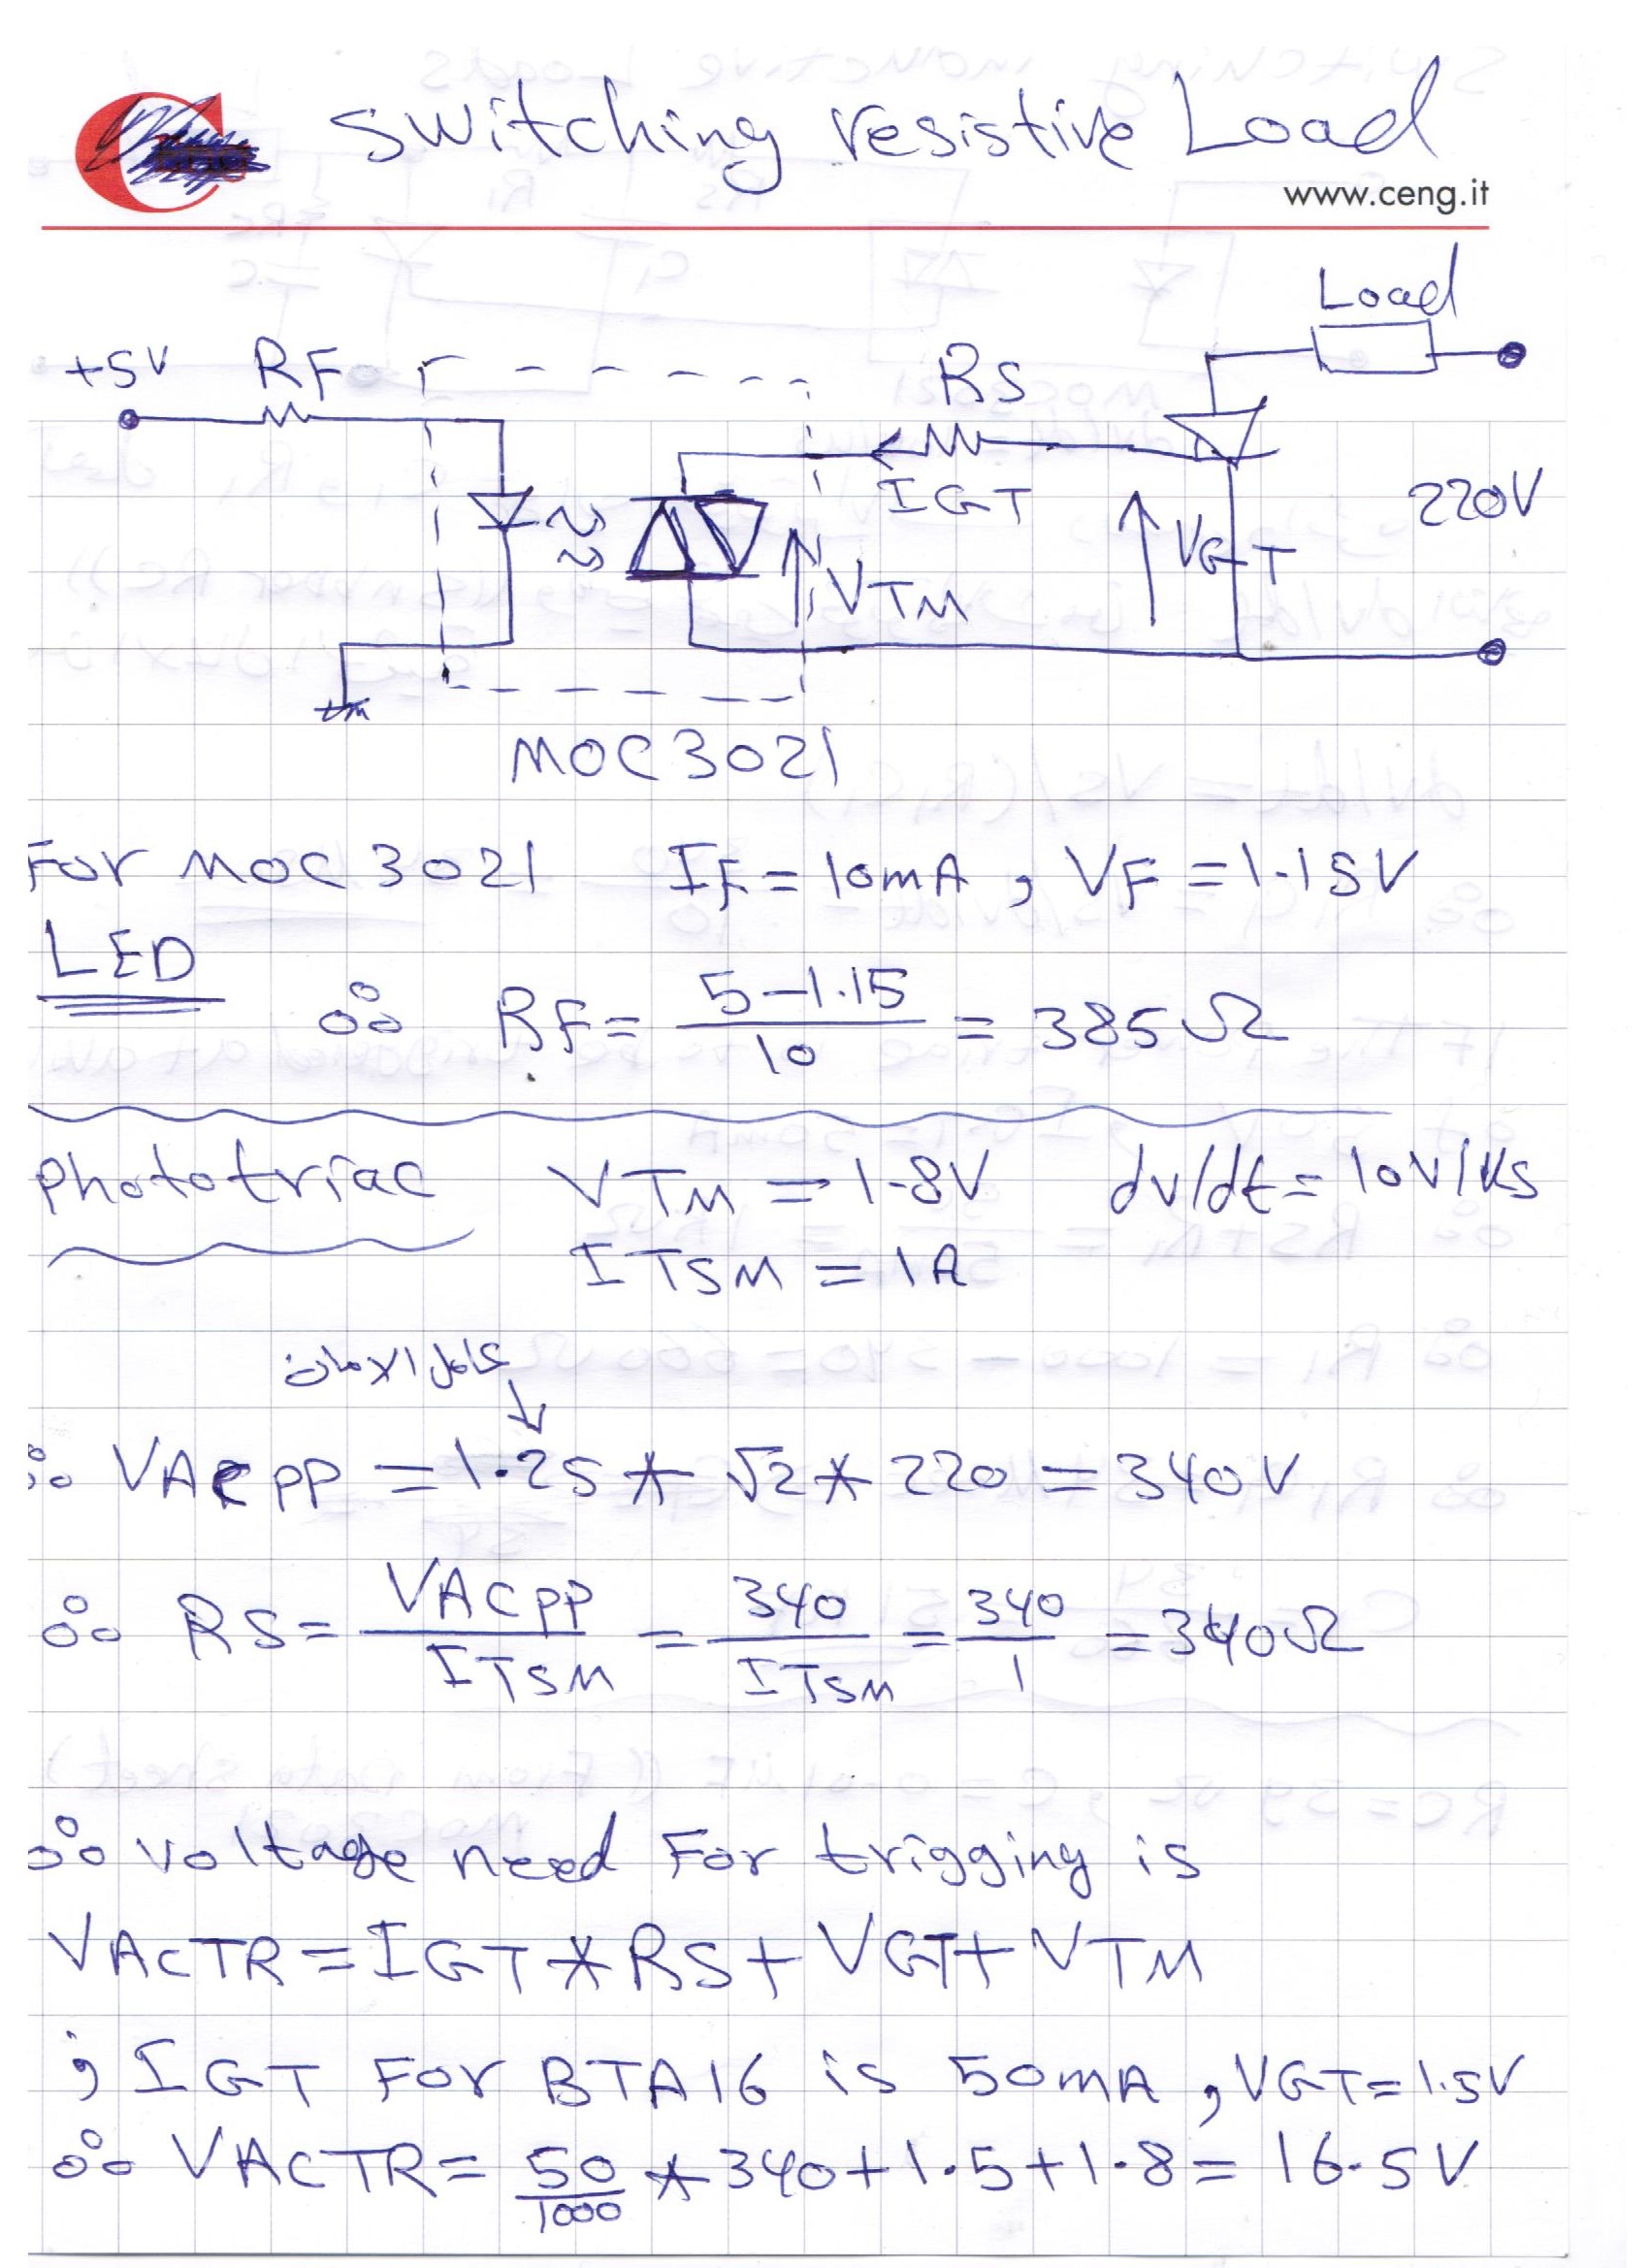 switching resistive Load
www.ceng.it
Load
+5V RF
RS
IGT
220V
VGT
VTM
MOC3021
For MOC3021 IF = 10mA, VF = 1.15V
LED
∴ RF = 5-1.15/10 = 385Ω
phototriac VTM = 1.8V dv/dt = 10V/μs
ITSM = 1A
عامل الامان
∴ VACPP = 1.25 * √2 * 220 = 340V
∴ RS = VACPP/ITSM = 340/ITSM = 340/1 = 340Ω
∴ voltage need For trigging is
VACTR = IGT * RS + VGT + VTM
, IGT FOR BTA16 is 50mA, VGT = 1.5V
∴ VACTR = 50/1000 * 340 + 1.5 + 1.8 = 16.5V